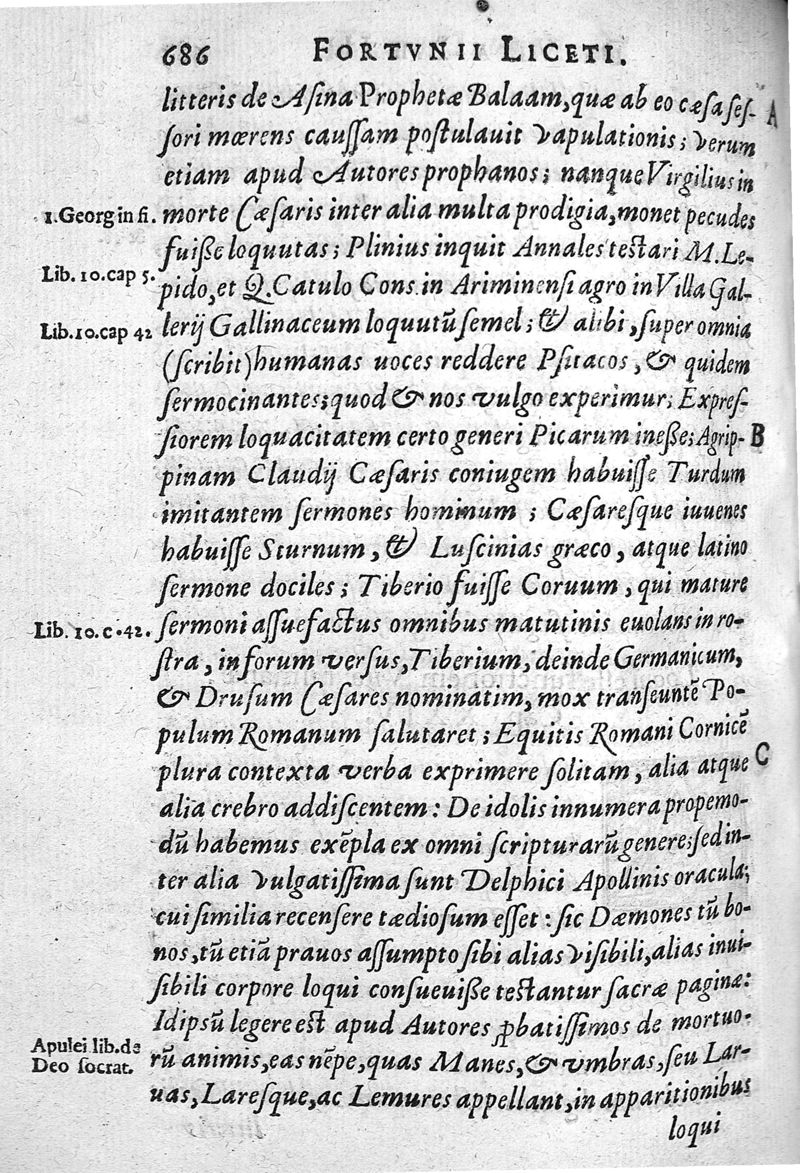 686 FORTVNII LICETI.
litteris de Asina Prophetæ Balaam, quæ ab eo cæsa ses-
A
sori mœrens caussam postulauit vapulationis; verum
etiam apud Autores prophanos; nanque Virgilius in
1. Georg in fi.
morte Cæsaris inter alia multa prodigia, monet pecudes
fuiße loquutas; Plinius inquit Annales testari M. Le-
Lib. 10. cap 5.
pido, et Q. Catulo Cons. in Ariminensi agro in Villa Gal-
Lib. 10. cap 42
lerij Gallinaceum loquutũ semel; & alibi, super omnia
(scribit) humanas uoces reddere Psitacos, & quidem
sermocinantes; quod & nos vulgo experimur; Expres-
siorem loquacitatem certo generi Picarum ineße; Agrip-
B
pinam Claudij Cæsaris coniugem habuisse Turdum
imitantem sermones hominum; Cæsaresque iuuenes
habuisse Sturnum, & Luscinias græco, atque latino
sermone dociles; Tiberio fuisse Coruum, qui mature
Lib. 10. c. 42.
sermoni assuefactus omnibus matutinis euolans in ro-
stra, in forum versus, Tiberium, deinde Germanicum,
& Drusum Cæsares nominatim, mox transeuntẽ Po-
pulum Romanum salutaret; Equitis Romani Cornicẽ
plura contexta verba exprimere solitam, alia atque
C
alia crebro addiscentem: De idolis innumera propemo-
dũ habemus exẽpla ex omni scripturarũ genere; sed in-
ter alia vulgatissima sunt Delphici Apollinis oracula;
cui similia recensere tædiosum esset: sic Dæmones tũ bo-
nos, tũ etiã prauos assumpto sibi alias visibili, alias inui-
sibili corpore loqui consueuiße testantur sacræ paginæ:
Idipsũ legere est apud Autores ꝓbatissimos de mortuo-
Apulei lib. de
Deo socrat.
rũ animis, eas nẽpe, quas Manes, & vmbras, seu Lar-
uas, Laresque, ac Lemures appellant, in apparitionibus
loqui